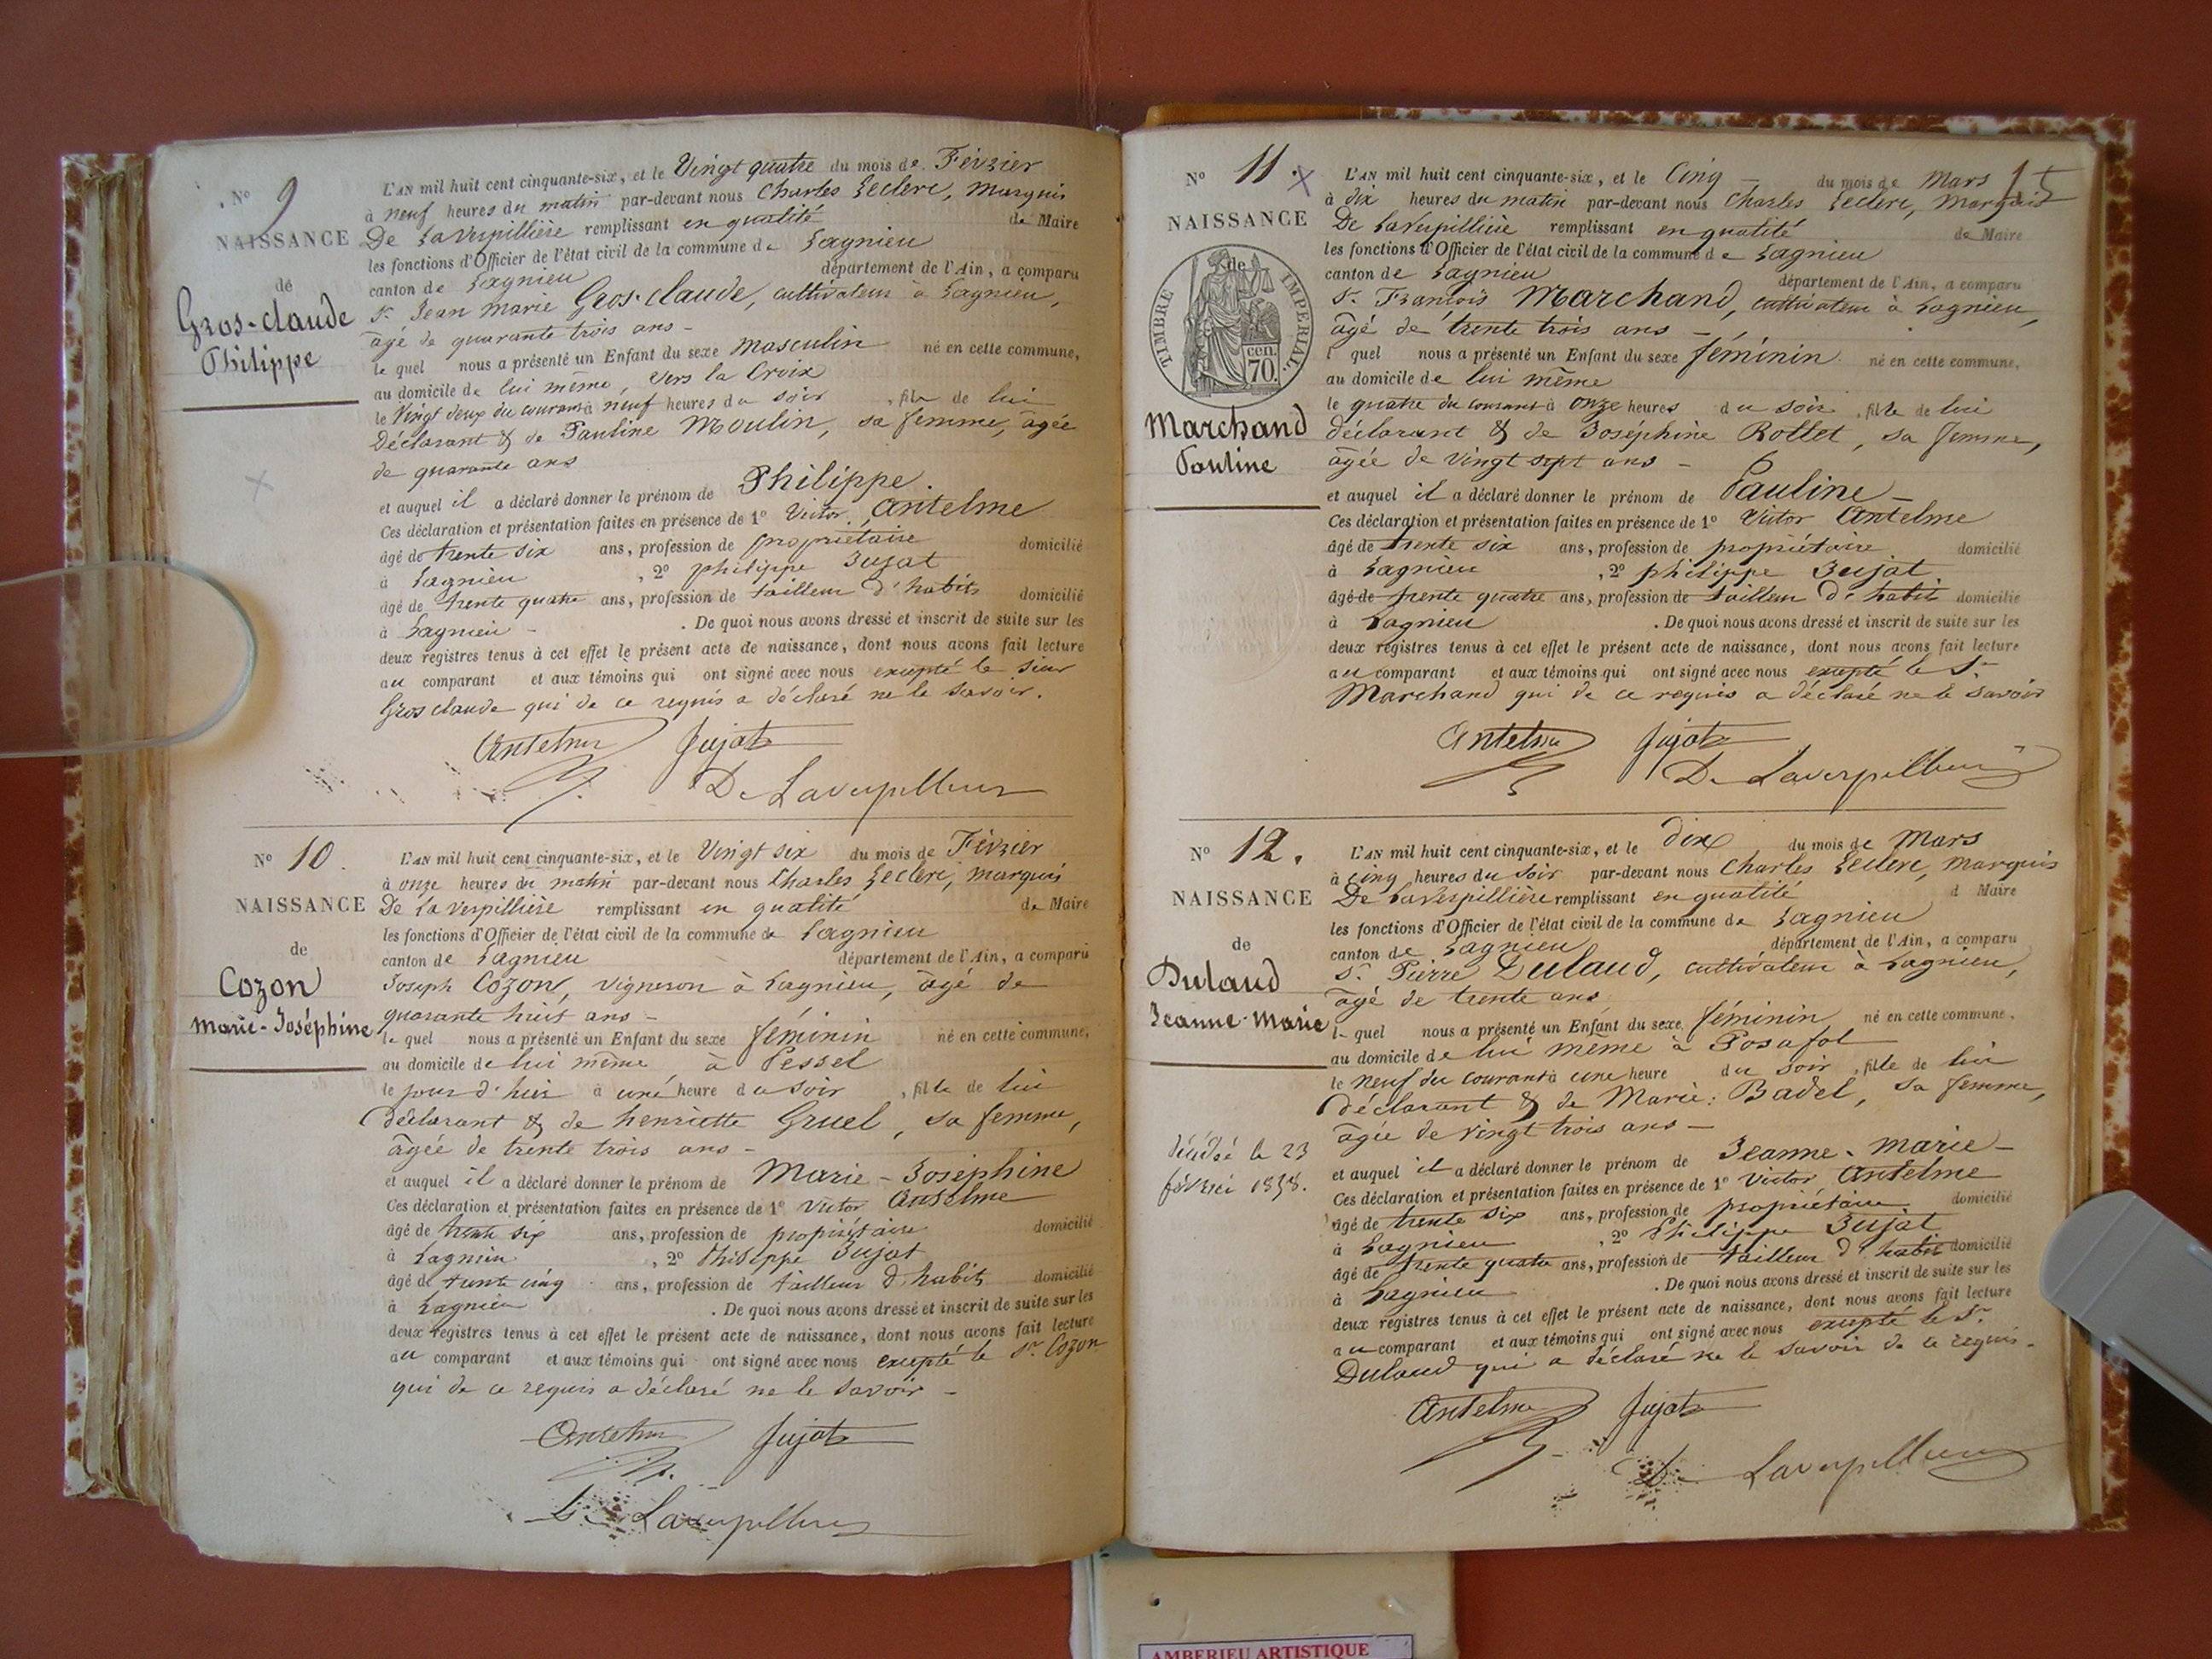 N° 9
NAISSANCE
de
Gros-claude
Philippe
L'AN mil huit cent cinquante-six, et le Vingt quatre du mois de Février
à neuf heures du matin par-devant nous Charles Leclerc, Marquis
De Laverpillière remplissant en qualité de Maire
les fonctions d'Officier de l'état civil de la commune de Lagnieu
canton de Lagnieu département de l'Ain, a comparu
Sr Jean Marie Gros-claude, cultivateur à Lagnieu,
âgé de quarante trois ans -
le quel nous a présenté un Enfant du sexe masculin né en cette commune,
au domicile de lui même, vers la Croix
le Vingt deux du courant à neuf heures du soir, fils de lui
Déclarant & de Pauline Moulin, sa femme, âgée
de quarante ans
et auquel il a déclaré donner le prénom de Philippe.
Ces déclaration et présentation faites en présence de 1° Victor Antelme
âgé de trente six ans, profession de propriétaire domicilié
à Lagnieu, 2° philippe Jujat
âgé de trente quatre ans, profession de tailleur d'habits domicilié
à Lagnieu - . De quoi nous avons dressé et inscrit de suite sur les
deux registres tenus à cet effet le présent acte de naissance, dont nous avons fait lecture
au comparant et aux témoins qui ont signé avec nous excepté le sieur
Gros claude qui de ce requis a déclaré ne le savoir.
Antelme Jujat
De Laverpilliere
N° 10.
NAISSANCE
de
Cozon
Marie-Joséphine
L'AN mil huit cent cinquante-six, et le Vingt six du mois de Février
à onze heures du matin par-devant nous Charles Leclerc, marquis
De Laverpillière remplissant en qualité de Maire
les fonctions d'Officier de l'état civil de la commune de Lagnieu
canton de Lagnieu département de l'Ain, a comparu
Joseph Cozon, Vigneron à Lagnieu, âgé de
quarante huit ans -
le quel nous a présenté un Enfant du sexe féminin né en cette commune,
au domicile de lui même à Pessel
le jour d'hier à une heure du soir, fille de lui
Déclarant & de henriette Gruel, sa femme,
âgée de trente trois ans -
et auquel il a déclaré donner le prénom de Marie-Joséphine
Ces déclaration et présentation faites en présence de 1° Victor Anselme
âgé de trente six ans, profession de propriétaire domicilié
à Lagnieu, 2° Philippe Jujat
âgé de trente cinq ans, profession de tailleur d'habits domicilié
à Lagnieu . De quoi nous avons dressé et inscrit de suite sur les
deux registres tenus à cet effet le présent acte de naissance, dont nous avons fait lecture
au comparant et aux témoins qui ont signé avec nous excepté le Sr Cozon
qui de ce requis a déclaré ne le savoir -
Anselme Jujat
De Laverpilliere
N° 11.
NAISSANCE
de
TIMBRE IMPERIAL
70 cen.
Marchand
Pauline
L'AN mil huit cent cinquante-six, et le Cinq du mois de Mars
à dix heures du matin par-devant nous Charles Leclerc, Marquis
De Laverpillière remplissant en qualité de Maire
les fonctions d'Officier de l'état civil de la commune de Lagnieu
canton de Lagnieu département de l'Ain, a comparu
Sr François Marchand, cultivateur à Lagnieu,
âgé de trente trois ans -
l quel nous a présenté un Enfant du sexe féminin né en cette commune,
au domicile de lui même
le quatre du courant à onze heures du soir, fille de lui
déclarant & de Joséphine Rollet, sa femme,
âgée de vingt sept ans -
et auquel il a déclaré donner le prénom de Pauline -
Ces déclaration et présentation faites en présence de 1° Victor Antelme
âgé de trente six ans, profession de propriétaire domicilié
à Lagnieu, 2° philippe Jujat
âgé de trente quatre ans, profession de tailleur d'habits domicilié
à Lagnieu . De quoi nous avons dressé et inscrit de suite sur les
deux registres tenus à cet effet le présent acte de naissance, dont nous avons fait lecture
au comparant et aux témoins qui ont signé avec nous excepté le Sr
Marchand qui de ce requis a déclaré ne le savoir
Antelme Jujat
De Laverpilliere
N° 12.
NAISSANCE
de
Dulaud
Jeanne-Marie
décédée le 23
février 1858.
L'AN mil huit cent cinquante-six, et le dix du mois de Mars
à cinq heures du soir par-devant nous Charles Leclerc, marquis
De Laverpillière remplissant en qualité d Maire
les fonctions d'Officier de l'état civil de la commune de Lagnieu
canton de Lagnieu département de l'Ain, a comparu
Sr Pierre Dulaud, cultivateur à Lagnieu,
âgé de trente ans
le quel nous a présenté un Enfant du sexe féminin né en cette commune,
au domicile de lui même à Posafol
le neuf du courant à une heure du soir, fille de lui
déclarant & de Marie Badel, sa femme,
âgée de vingt trois ans -
et auquel il a déclaré donner le prénom de Jeanne-Marie -
Ces déclaration et présentation faites en présence de 1° Victor Antelme
âgé de trente six ans, profession de propriétaire domicilié
à Lagnieu, 2° Philippe Jujat
âgé de trente quatre ans, profession de tailleur d'habits domicilié
à Lagnieu . De quoi nous avons dressé et inscrit de suite sur les
deux registres tenus à cet effet le présent acte de naissance, dont nous avons fait lecture
au comparant et aux témoins qui ont signé avec nous excepté le Sr
Dulaud qui a déclaré ne le savoir de ce requis -
Antelme Jujat
De Laverpilliere
AMBERIEU ARTISTIQUE